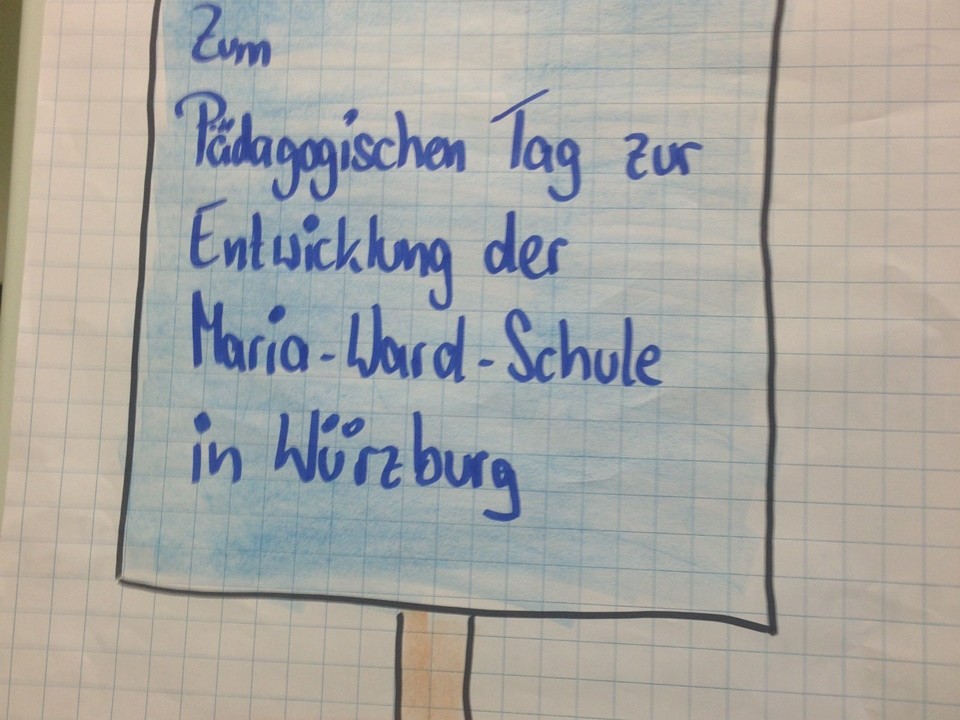 Zum
Pädagogischen Tag zur
Entwicklung der
Maria-Ward-Schule
in Würzburg